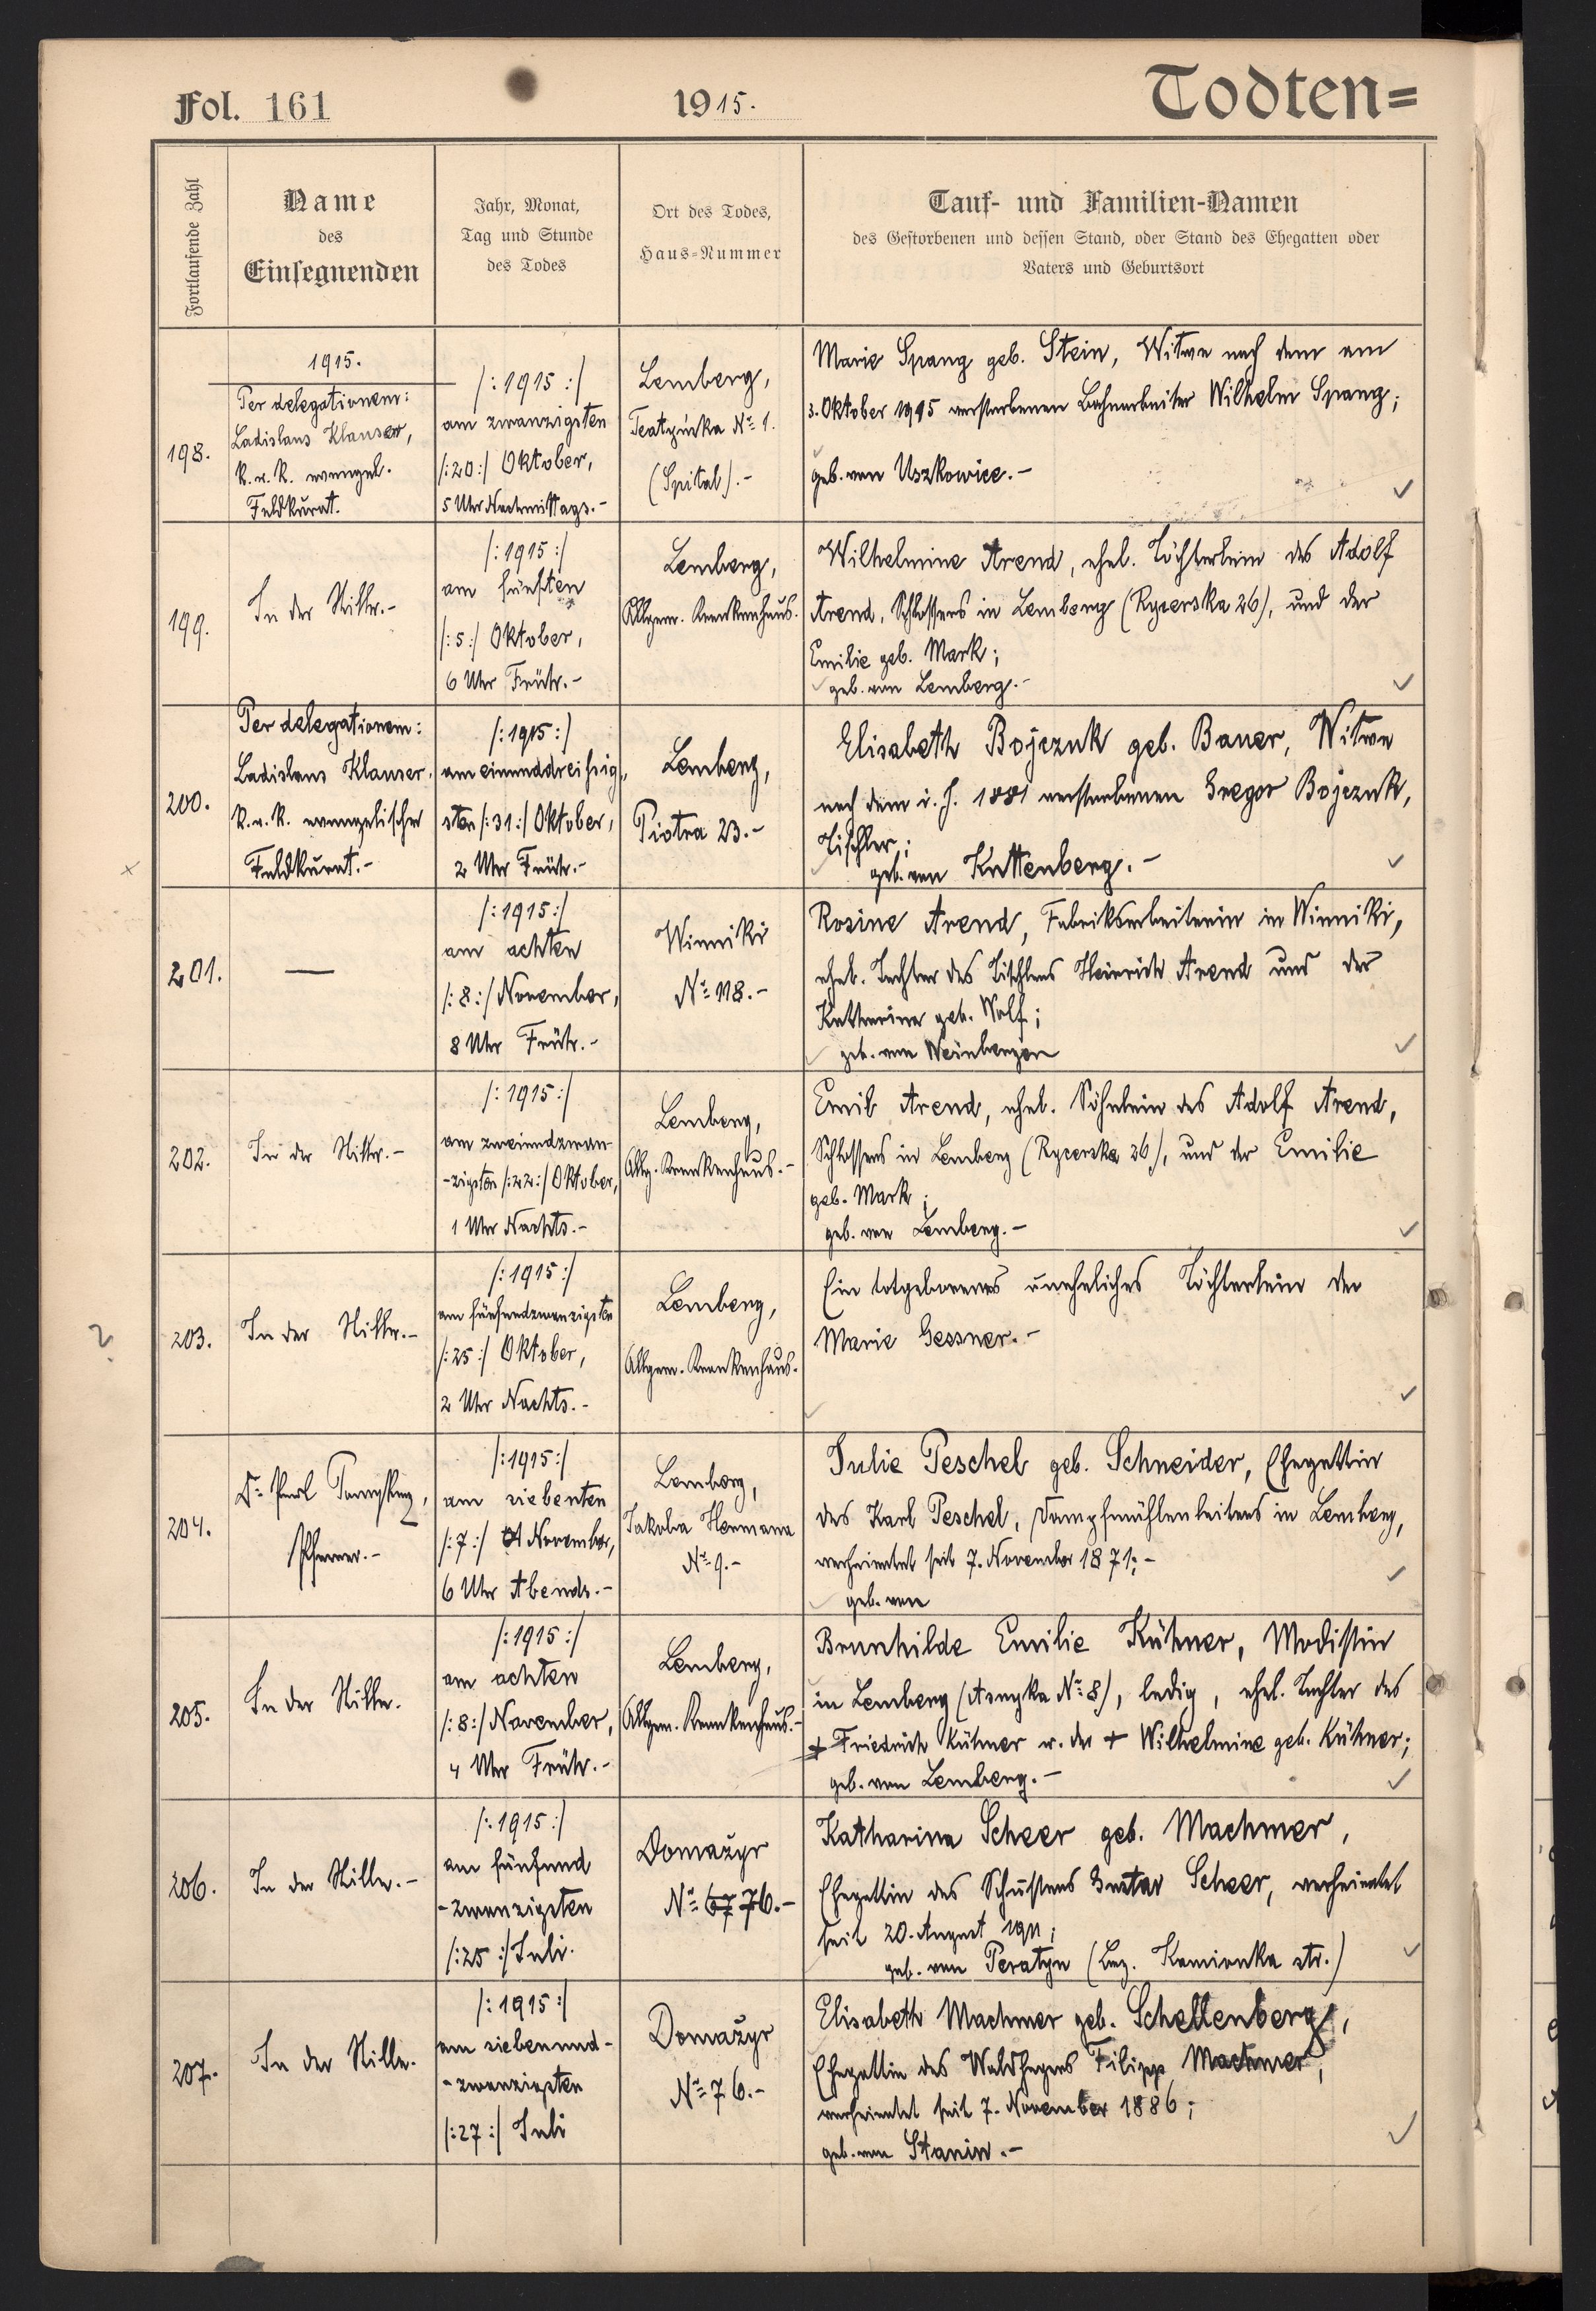 Fol. 161
1915.
Todten=
Fortlaufende Zahl
Name
des
Einsegnenden
Jahr, Monat,
Tag und Stunde
des Todes
Ort des Todes,
Haus=Nummer
Tauf- und Familien-Namen
des Gestorbenen und dessen Stand, oder Stand des Ehegatten oder
Vaters und Geburtsort
198.
1915.
Per delegationem:
Ladislaus Klauser,
k.u.k. evangel.
Feldkurat.
/:1915:/
am zwanzigsten
/:20:/ Oktober,
5 Uhr Nachmittags.-
Lemberg,
Teatyńska No 1.
(Spital).-
Marie Spang geb. Stein, Witwe nach dem am
3. Oktober 1915 verstorbenen Bahnarbeiter Wilhelm Spang;
geb. von Uszkowice.-
199.
In der Stille.-
/:1915:/
am fünften
/:5:/ Oktober,
6 Uhr Früh.-
Lemberg,
Allgem. Krankenhaus.
Wilhelmine Arend, ehel. Töchterlein des Adolf
Arend, Schlossers in Lemberg (Rycerska 26), und der
Emilie geb. Mark;
geb. von Lemberg.-
200.
Per delegationem:
Ladislaus Klauser,
k.u.k. evangelischer
Feldkurat.-
/:1915:/
am einunddreißig-
sten /:31:/ Oktober,
2 Uhr Früh.-
Lemberg,
Piotra 23.-
Elisabeth Bojczuk geb. Bauer, Witwe
nach dem i. J. 1881 verstorbenen Gregor Bojczuk,
Tischler;
geb. von Kuttenberg.-
201.
—
/:1915:/
am achten
/:8:/ November,
8 Uhr Früh.-
Winniki
No 118.-
Rosine Arend, Fabriksarbeiterin in Winniki,
ehel. Tochter des Tischlers Heinrich Arend und der
Katharina geb. Wolf;
geb. von Weinbergen
202.
In der Stille.-
/:1915:/
am zweiundzwan-
-zigsten /:22:/ Oktober,
1 Uhr Nachts.-
Lemberg,
Allg. Krankenhaus.-
Emil Arend, ehel. Söhnlein des Adolf Arend,
Schlossers in Lemberg (Rycerska 26), und der Emilie
geb. Mark;
geb. von Lemberg.-
?
203.
In der Stille.-
/:1915:/
am fünfundzwanzigsten
/:25:/ Oktober,
2 Uhr Nachts.-
Lemberg,
Allgem. Krankenhaus.
Ein totgeborenes uneheliches Töchterlein der
Marie Gessner.-
204.
Dr. Paul
Pfarrer.-
/:1915:/
am siebenten
/:7:/ November,
6 Uhr Abends.-
Lemberg,
Jakoba Hermana
No 9.-
Julie Peschel geb. Schneider, Ehegattin
des Karl Peschel, Dampfmühlenleiters in Lemberg,
verheiratet seit 7. November 1871;-
geb. von
205.
In der Stille.
/:1915:/
am achten
/:8:/ November,
4 Uhr Früh.-
Lemberg,
Allgem. Krankenhaus.-
Brunhilde Emilie Kühner, Modistin
in Lemberg (Asnyka No 8), ledig, ehel. Tochter des
+ Friedrich Kühner u. der + Wilhelmine geb. Kühner;
geb. von Lemberg.-
206.
In der Stille.-
/:1915:/
am fünfund
-zwanzigsten
/:25:/ Juli.
Domażyr
No 67 76.-
Katharina Scheer geb. Machmer,
Ehegattin des Schusters Gustav Scheer, verheiratet
seit 20. August 1911;
geb. von Peratyn (Bez. Kamionka str.)
207.
In der Stille.
/:1915:/
am siebenund-
-zwanzigsten
/:27:/ Juli
Domażyr
No 76.-
Elisabeth Machmer geb. Schellenberg,
Ehegattin des Waldhegers Filipp Machmer,
verheiratet seit 7. November 1886;
geb. von Stanin.-